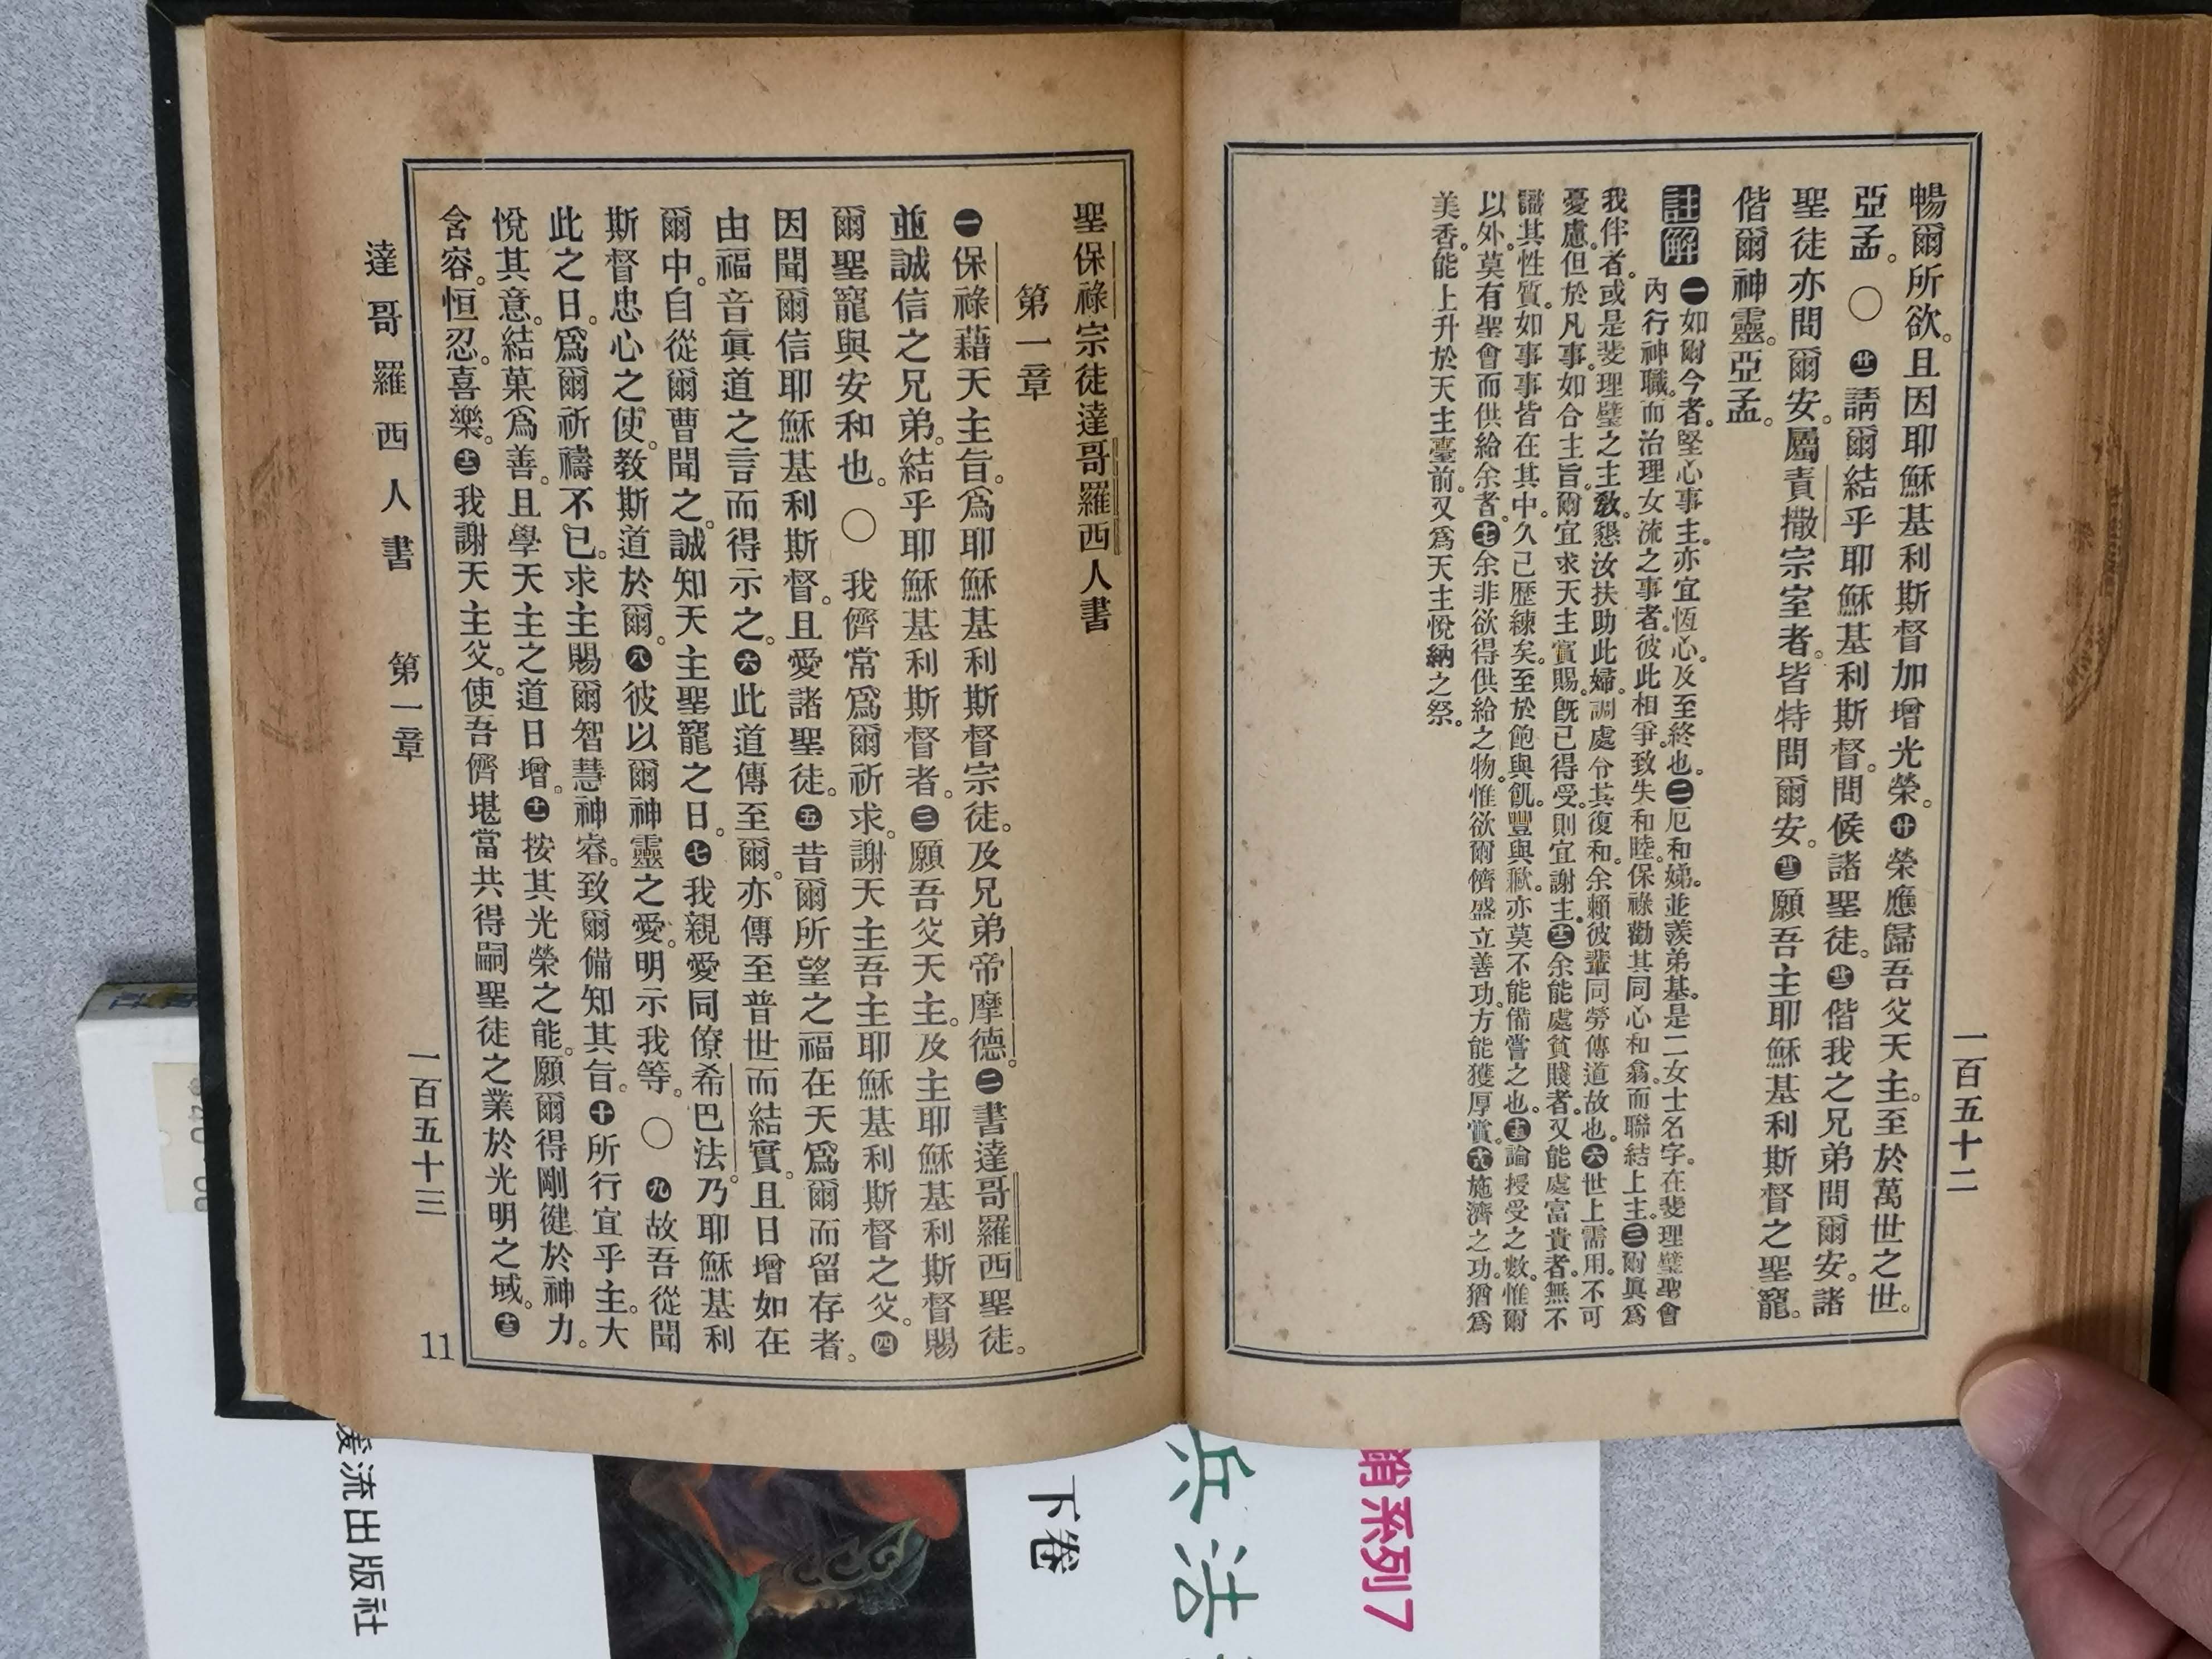 暢爾所欲。且因耶穌基利斯督加增光榮。㊉榮應歸吾父天主。至於萬世之世。
亞孟。〇請爾結乎耶穌基利斯督。問候諸聖徒。偕我之兄弟問爾安。諸
聖徒亦問爾安。屬責撒宗室者。皆特問爾安。願吾主耶穌基利斯督之聖寵。
偕爾神靈。亞孟。
註解 一如爾今者。堅心事主。亦宜恆心。及至終也。二厄和娣。並羨弟基。是二女士名字。在斐理璧聖會
內行神職。而治理女流之事者。彼此相爭。致失和睦。保祿勸其同心和翕。而聯結上主。三爾眞爲
我伴者。或是斐理璧之主敎。懇汝扶助此婦。調處令其復和。余賴彼輩同勞傳道故也。六世上需用。不可
憂慮。但於凡事。如合主旨。爾宜求天主賞賜。旣已得受。則宜謝主。十二余能處貧賤者。又能處富貴者。無不
識其性質。如事事皆在其中。久已歷練矣。至於飽與飢。豐與歉。亦莫不能備嘗之也。十五論授受之數。惟爾
以外。莫有聖會而供給余者。十七余非欲得供給之物。惟欲爾儕盛立善功。方能獲厚賞。十八施濟之功。猶爲
美香。能上升於天主臺前。又爲天主悅納之祭。
一百五十二
聖保祿宗徒達哥羅西人書
第一章
一保祿藉天主旨。爲耶穌基利斯督宗徒。及兄弟帝摩德。二書達哥羅西聖徒。
並誠信之兄弟。結乎耶穌基利斯督者。三願吾父天主。及主耶穌基利斯督賜
爾聖寵與安和也。〇我儕常爲爾祈求。謝天主吾主耶穌基利斯督之父。四
因聞爾信耶穌基利斯督。且愛諸聖徒。五昔爾所望之福在天爲爾而留存者。
由福音眞道之言而得示之。六此道傳至爾。亦傳至普世而結實。且日增如在
爾中。自從爾曹聞之。誠知天主聖寵之日。七我親愛同僚希巴法。乃耶穌基利
斯督忠心之使。敎斯道於爾。八彼以爾神靈之愛。明示我等。〇九故吾從聞
此之日。爲爾祈禱不已。求主賜爾智慧神睿。致爾備知其旨。十所行宜乎主。大
悅其意。結菓爲善。且學天主之道日增。十一按其光榮之能。願爾得剛健於神力。
含容。恒忍。喜樂。十二我謝天主父。使吾儕堪當共得嗣聖徒之業於光明之域。十三
達哥羅西人書 第一章 一百五十三
11
遠流出版社
下卷
兵法
系列7